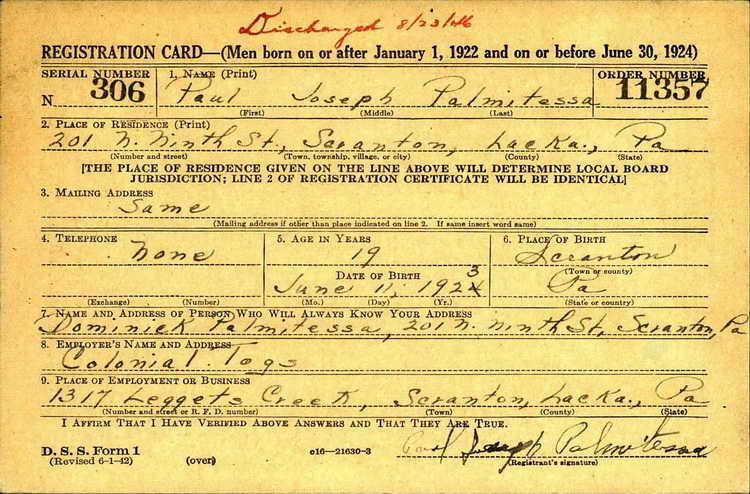 Discharged 8/23/46
REGISTRATION CARD—(Men born on or after January 1, 1922 and on or before June 30, 1924)
SERIAL NUMBER 1. NAME (Print) ORDER NUMBER
N 306 Paul Joseph Palmitessa 11357
(First) (Middle) (Last)
2. PLACE OF RESIDENCE (Print)
201 N. Ninth St., Scranton, Lacka., Pa
(Number and street) (Town, township, village, or city) (County) (State)
[THE PLACE OF RESIDENCE GIVEN ON THE LINE ABOVE WILL DETERMINE LOCAL BOARD
JURISDICTION; LINE 2 OF REGISTRATION CERTIFICATE WILL BE IDENTICAL]
3. MAILING ADDRESS
Same
(Mailing address if other than place indicated on line 2. If same insert word same)
4. TELEPHONE 5. AGE IN YEARS 6. PLACE OF BIRTH
None 19 Scranton
(Town or county)
DATE OF BIRTH
June 11, 1923 Pa
(Exchange) (Number) (Mo.) (Day) (Yr.) (State or country)
7. NAME AND ADDRESS OF PERSON WHO WILL ALWAYS KNOW YOUR ADDRESS
Dominick Palmitessa, 201 N. Ninth St, Scranton, Pa
8. EMPLOYER'S NAME AND ADDRESS
Colonial Togs
9. PLACE OF EMPLOYMENT OR BUSINESS
1317 Leggets Creek, Scranton, Lacka., Pa
(Number and street or R. F. D. number) (Town) (County) (State)
I AFFIRM THAT I HAVE VERIFIED ABOVE ANSWERS AND THAT THEY ARE TRUE.
D. S. S. Form 1 Paul Joseph Palmitessa
(Revised 6-1-42) (over) c16—21630-3 (Registrant's signature)